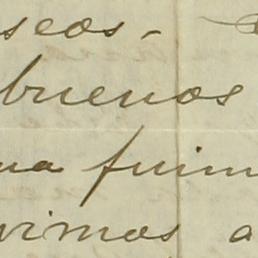 seos.-
buenos
na fuim
vimos a